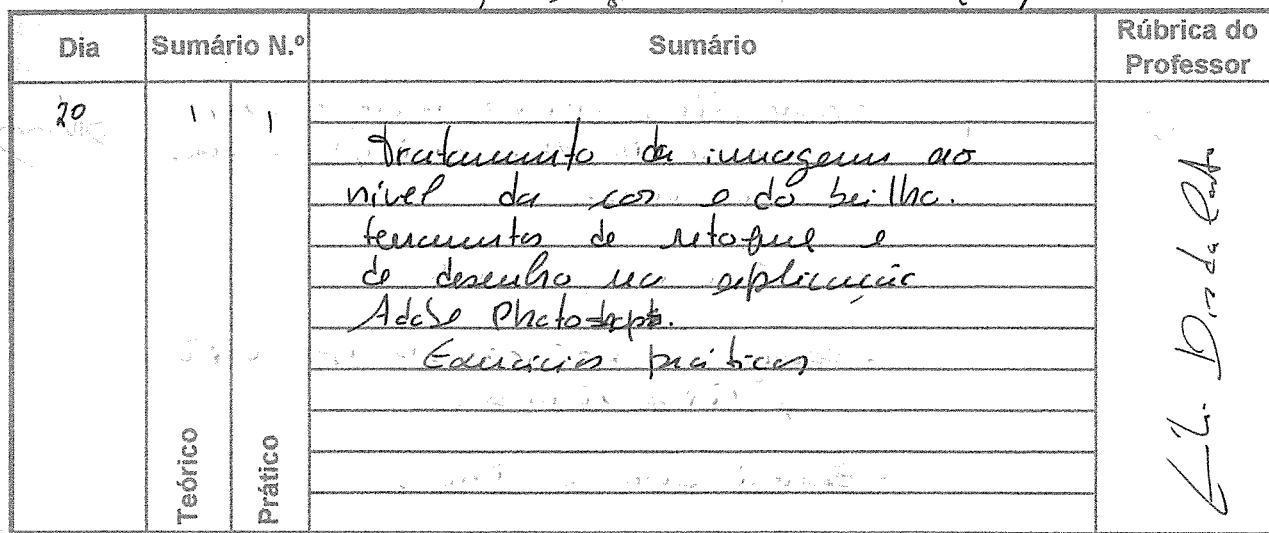 Dia Sumário N.º Sumário Rúbrica do Professor
20 1 1
Tratamento da imagem ao
nível da cor e do brilho.
ferramentas de retoque e
de desenho na aplicação
Adobe Photoshop.
Exercícios práticos
Teórico Prático